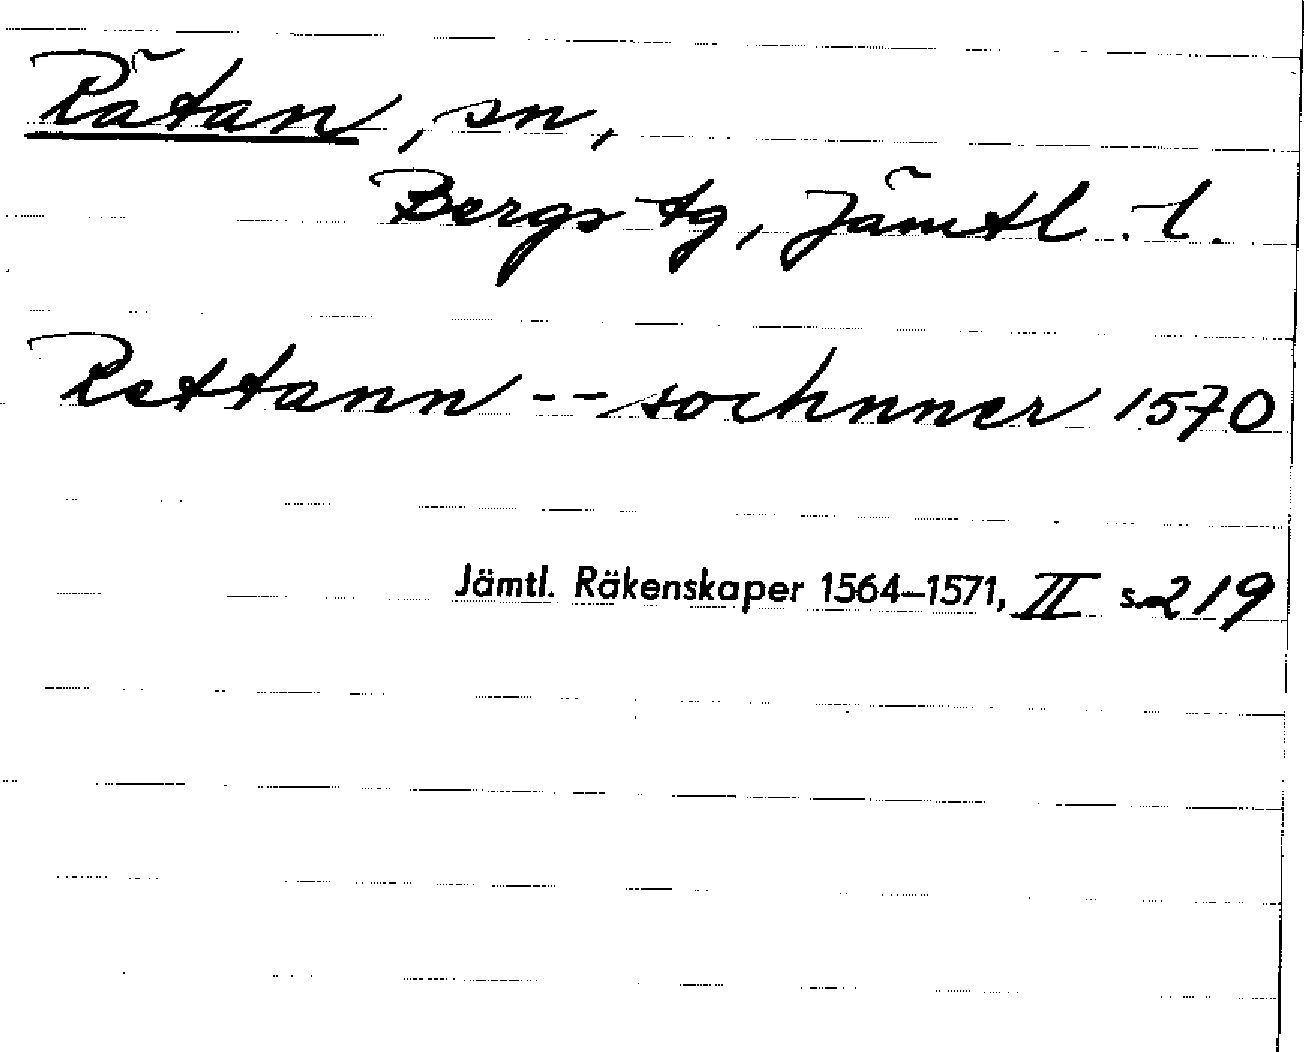 Rätan, sn,
Bergs tg, Jämtl. l.
Rettann -- sochnner 1570
Jämtl. Räkenskaper 1564–1571, II s. 219